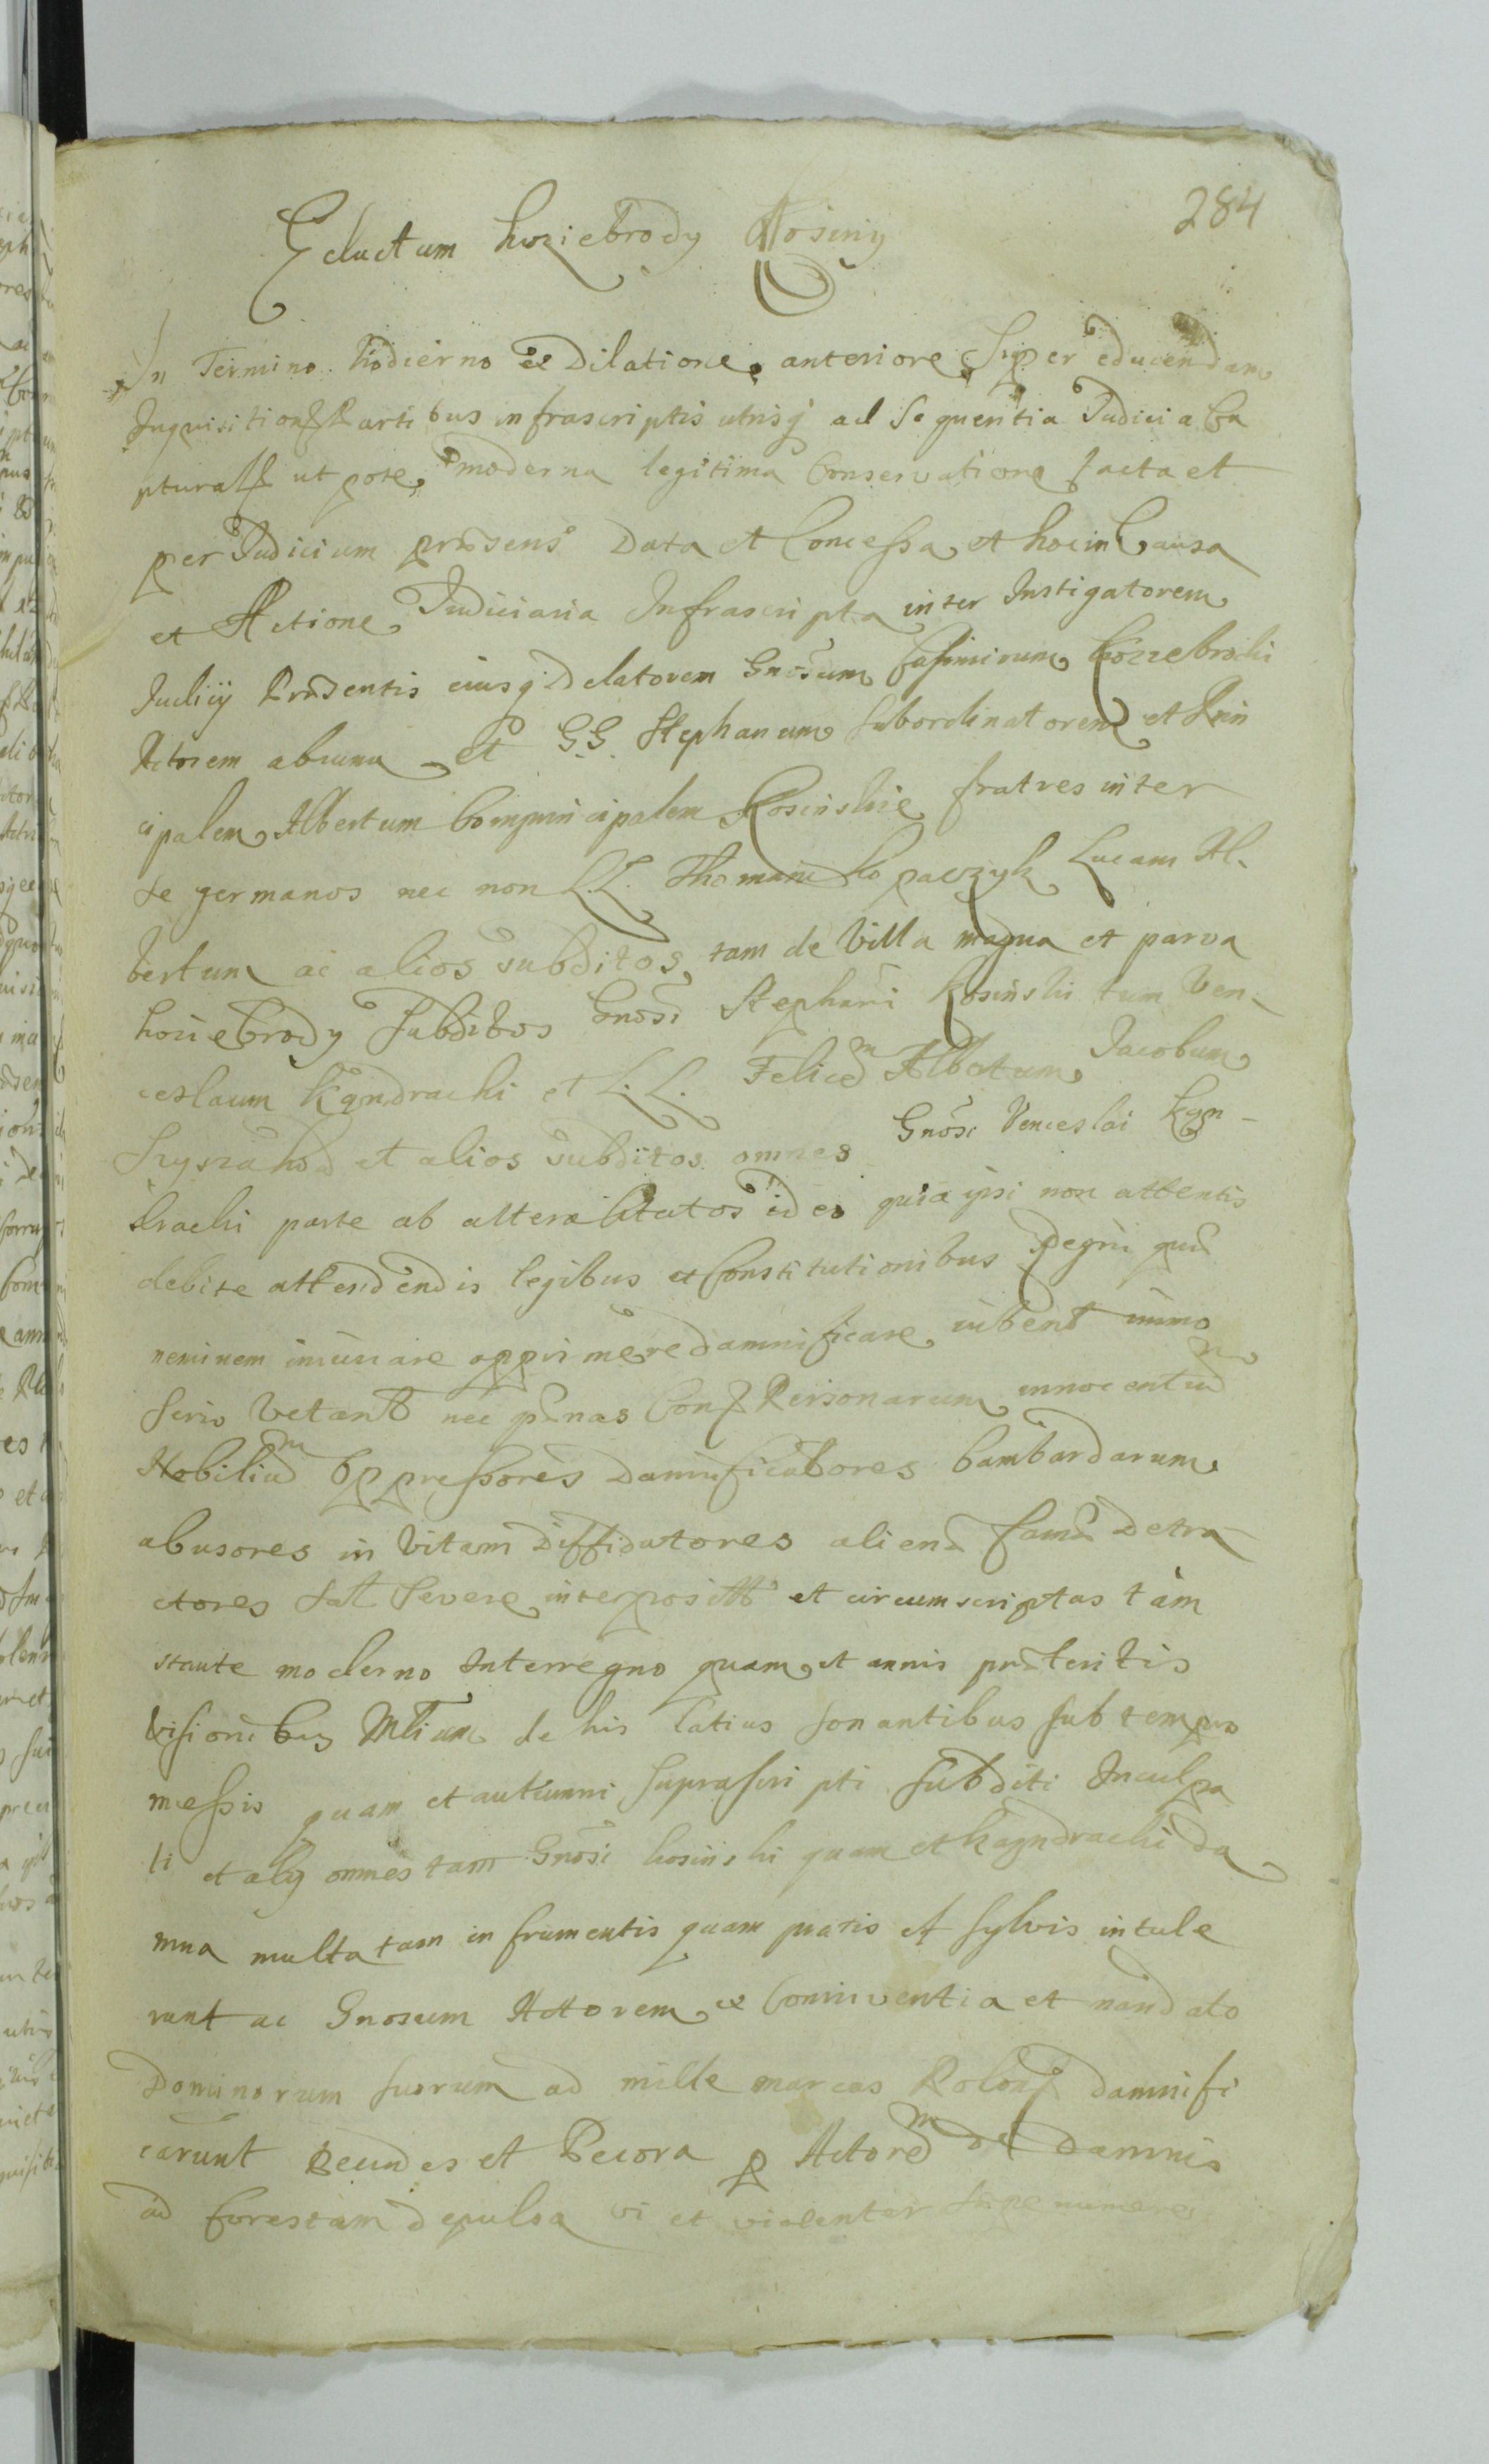 284
Eductum koziebrody Kosiny
In Termino hodierno ex Dilatione anteriore Super educendam
Inquisitionem Partibus infrascriptis utrisq ad Sequentia Judicia Ca
pturalia ut pote moderna legitima Conservatione facta et
per Judicium prnsens Data et Concessa et hoc in Causa
et Actione Judiciaria Infrascripta inter Instigatorem
Judicij Prnsentis eiusq Delatorem Gnosum Casimirum koziebrodzki
Actorem ab una et G.G. Stephanum Subordinatorem et Prin
cipalem Albertum Comprincipalem Kosinskie fratres inter
se germanos nec non L.L. Thomam kopaczyk Lucam Al-
bertum ac alios subditos tam de Villa magna et parva
koziebrody Subditos Gnosi Stephani Kosinski tum Ven-
ceslaum Kęndracki et L.L. Felicem Albertum Jacobum
et alios subditos omnes Gnosi Venceslai Kęn-
dracki parte ab altera Citatos ideo quia ipsi non attentis
debite attendendis legibus et Constitutionibus Regni qua
neminem iniuriare opprimere damnificare iubent immo
serio vetant nec pnas Con Personarum innocentum
Nobilium Oppressores Damnificatores bambardarum
abusores in Vitam Diffidatores aliena fama Detra
ctores Sat Severe interposittas et circumscriptas tam
stante moderno Interregno quam et annis prteritis
Visionibus Mltium de his latius sonantibus sub tempus
messis quam et autumni suprascripti Subditi Inculpa
ti et alij omnes tam Gnosi kosinski quam et Kęndracki Da
mna multa tam in frumentis quam pratis et Sylvis intule
runt ac Gnosum Actorem ex Conniventia et mandato
Dominorum suorum ad mille marcas Polon damnifi
carunt Pecudes et Pecora p Actorem de Damnis
ad forestam depulsa vi et violenter sepe numero